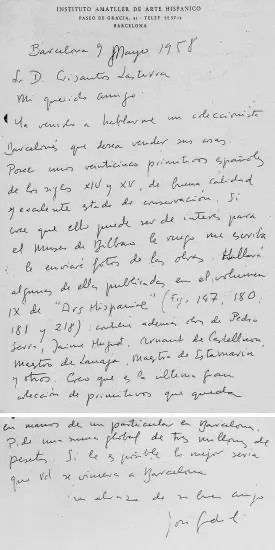 INSTITUTO AMATLLER DE ARTE HISPANICO
PASEO DE GRACIA, 41 - TELEF
BARCELONA
Barcelona 9 Mayo 1958
Sr. D. Crisanto Lasterra
Mi querido amigo:
Ha venido a hablarme un coleccionista
Barcelonés que desea vender sus cosas.
Posee unos veinticinco primitivos españoles
de los siglos XIV y XV, de buena calidad
y excelente estado de conservación. Si
cree que ello puede ser de interés para
el Museo de Bilbao le ruego me escriba
le enviaré fotos de las obras. Hallará
algunas de ellas publicadas en el volumen
IX de "Ars Hispaniae" (Fig. 147, 180,
181 y 218) contiene además obras de Pedro
Serra, Jaime Huguet, Arnaut de Castellnou,
Maestro de Lanaja, Maestro de Estamariu
y otros. Creo que es la última gran
colección de primitivos que queda
en manos de un particular en Barcelona.
Pide una suma global de tres millones de
pesetas. Si le es posible lo mejor sería
que Vd se viniera a Barcelona
un abrazo de su buen amigo
José